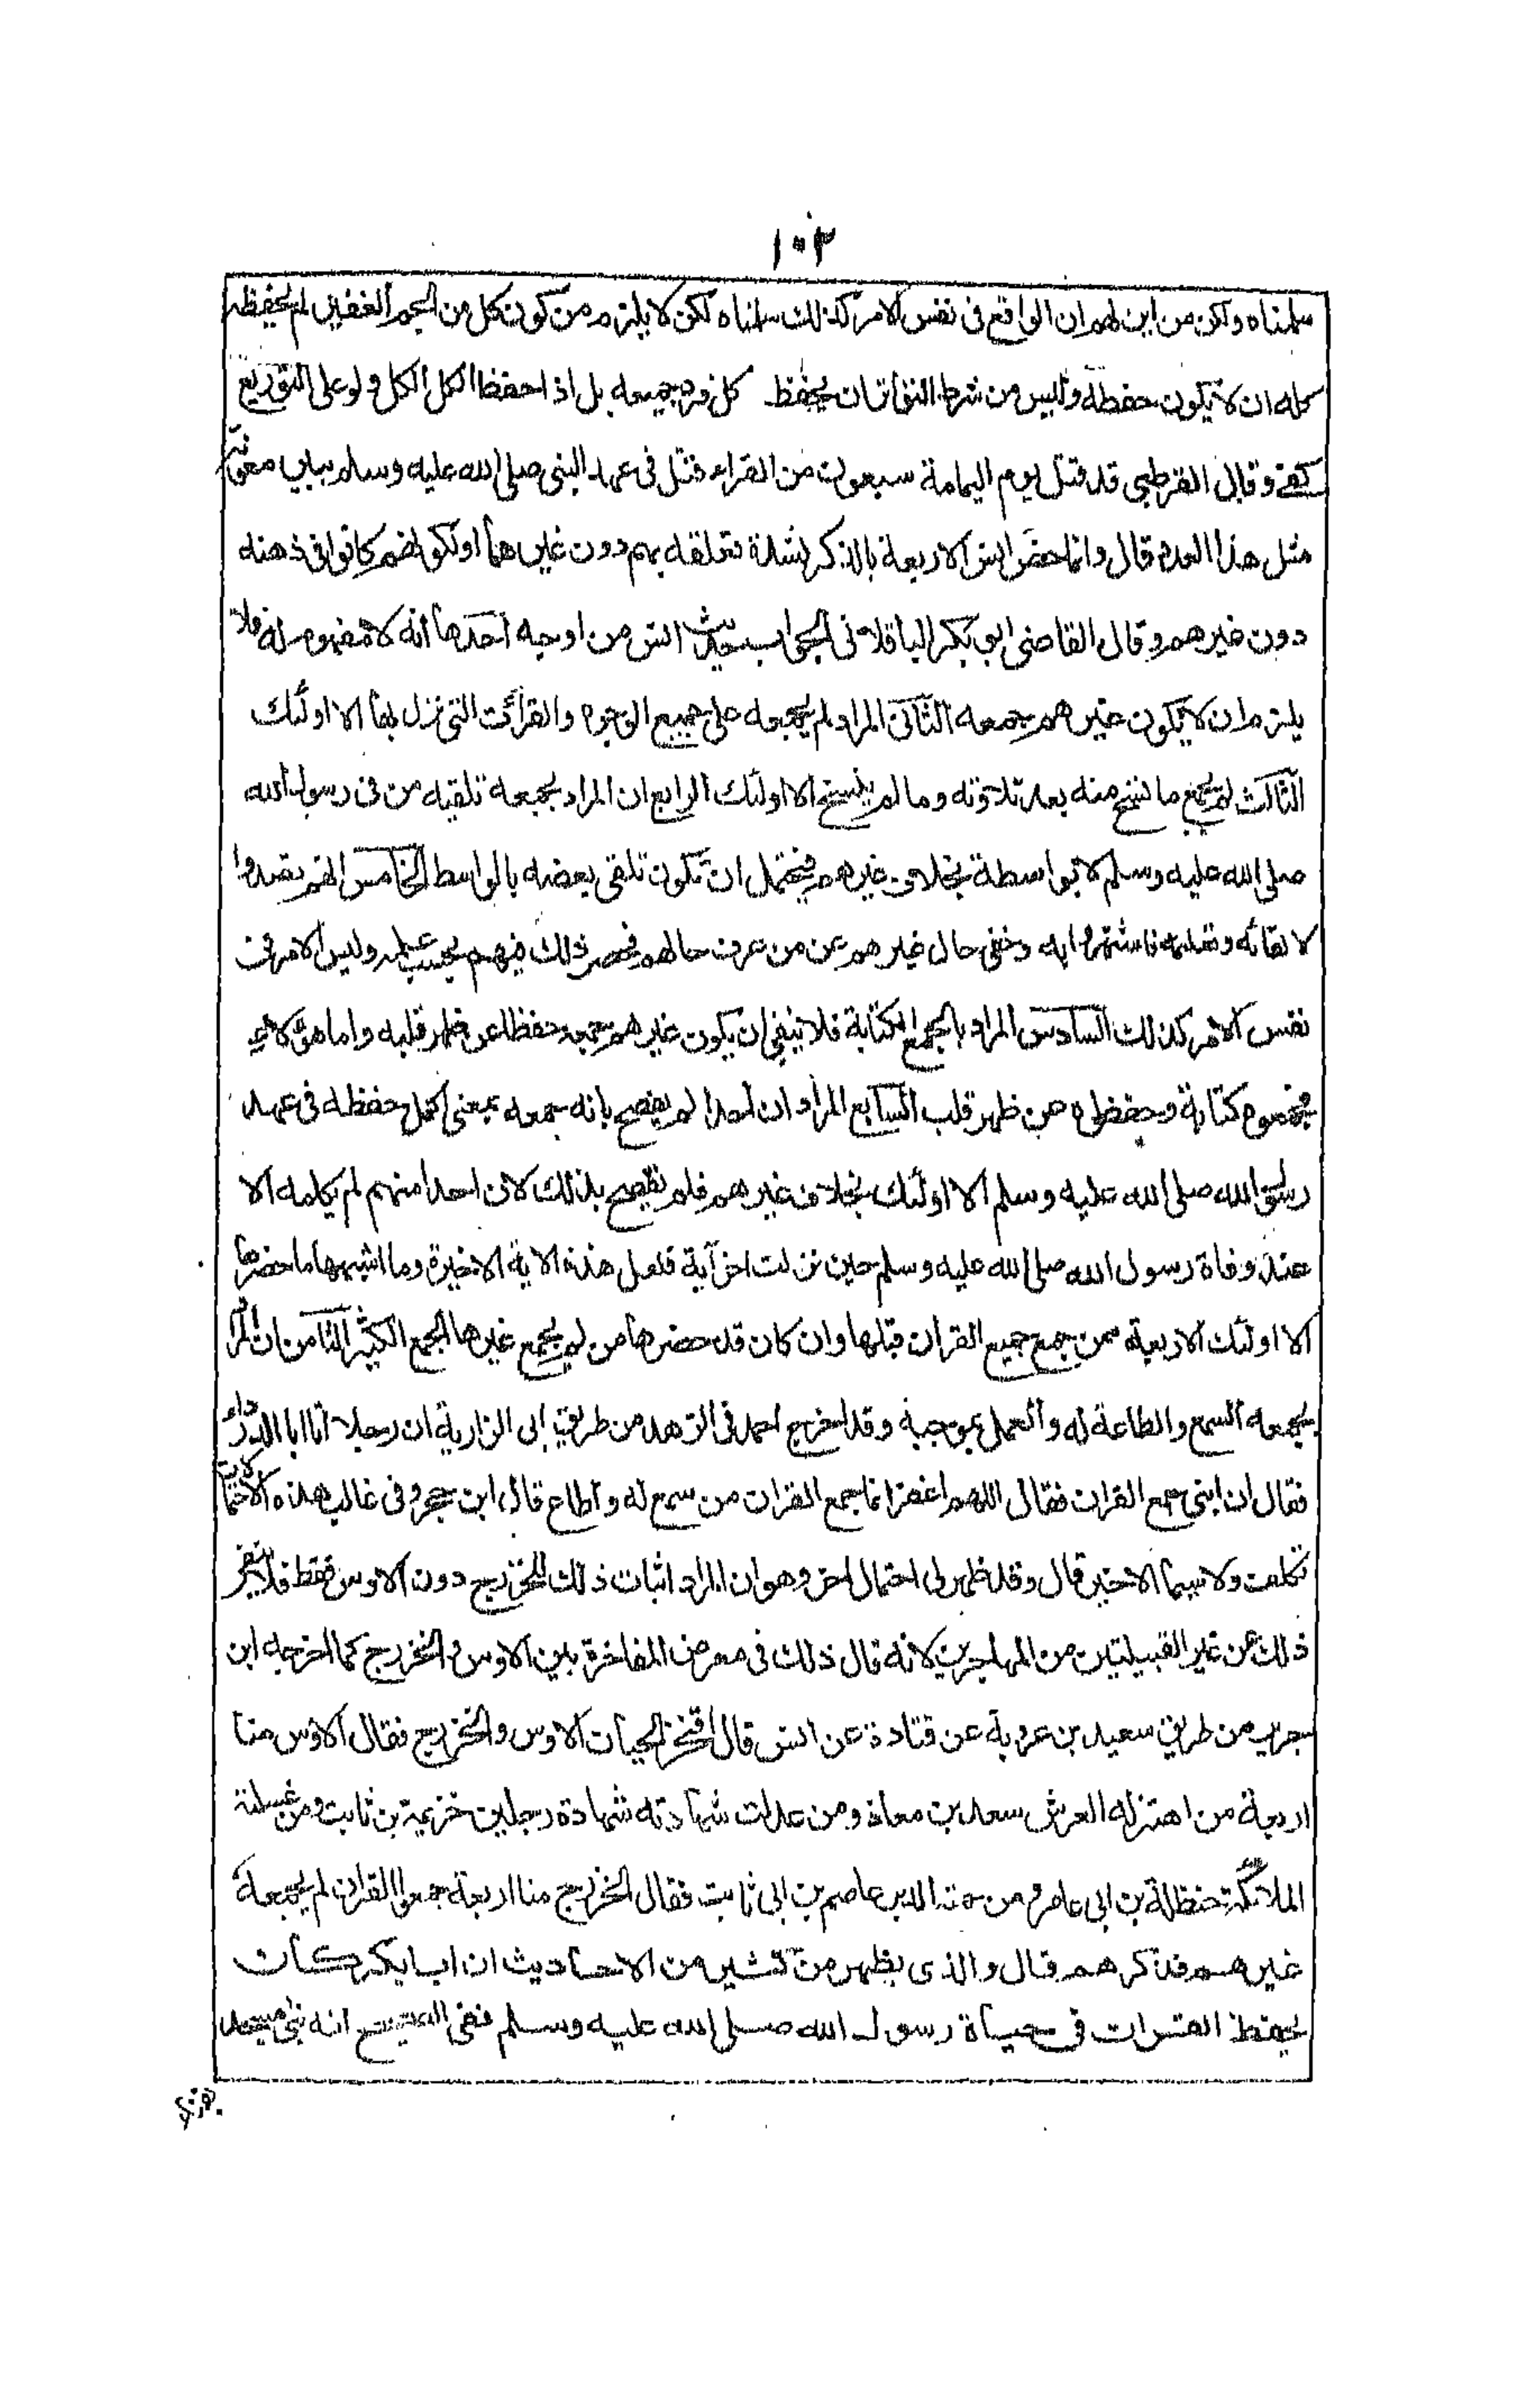 ١٠٢
سلمناه ولكن من اين لهم ان الواقع فى نفس الامر كذلك سلمناه لكن لا يلزم من كون كل من الجم الغفير لم يحفظه
كله ان لا يكون حفظه وليس من شرط التواتر ان يحفظ كل فرد جميعه بل اذا حفظ الكل الكل ولو على التوزيع
كفى وقال القرطبى قد قتل يوم اليمامة سبعون من القراء وقتل فى عهد النبى صلى الله عليه وسلم ببير معونة
مثل هذا العدد قال وانما خص انس الاربعة بالذكر لشدة تعلقه بهم دون غيرهم او لكونهم كانوا فى ذهنه
دون غيرهم وقال القاضى ابو بكر الباقلا نى الجواب بحديث انس من اوجه احدها انه لا مفهوم له فلا
يلزم ان لا يكون غيرهم جمعه الثانى المراد لم يجمعه على جميع الوجوه والقرأت التى نزل بها الا اولئك
الثالث لم يجمع ما نسخ منه بعد تلاوته وما لم ينسخ الا اولئك الرابع ان المراد بجمعه تلقيه من فى رسول الله
صلى الله عليه وسلم لا بواسطة بخلاف غيرهم فيحتمل ان تكون تلقى بعضه بالواسط الخامس انهم تصدوا
لالقائه وتعليمه فاشتهروا به وخفى حال غيرهم عن من عرف حالهم فحصر ذلك فيهم بحسب علمه وليس الامر فى
نفس الامر كذلك السادس المراد بالجمع الكتابة فلا ينفى ان يكون غيرهم جمعه حفظا عن ظهر قلبه واما هؤلاء
فجمعوه كتابة وحفظوه عن ظهر قلب السابع المراد ان احدا لم يفصح بانه جمعه بمعنى اكمل حفظه فى عهد
رسول الله صلى الله عليه وسلم الا اولئك بخلاف غيرهم فلم يفصح بذلك لان احدا منهم لم يكمله الا
عند وفاة رسول الله صلى الله عليه وسلم حين نزلت اخر آية فلعل هذه الاية الاخيرة وما اشبهها ما حضرها
الا اولئك الاربعة ممن جمع جميع القران قبلها وان كان قد حضرها من لم يجمع غيرها الجمع الكثير الثامن ان المراد
بجمعه السمع والطاعة له والعمل بموجبه وقد اخرج احمد فى الزهد من طريق ابى الزارية ان رجلا اتا ابا الدرداء
فقال ان ابنى جمع القران فقال اللهم اغفر انما جمع القران من سمع له واطاع قال ابن حجر وفى غالب هذه الاحتمالات
تكلف ولا سيما الاخير قال وقد ظهر لى احتمال اخر وهو ان المراد اثبات ذلك للخزرج دون الاوس فقط فلا ينفى
ذلك عن غير القبيلتين من المهاجرين لانه قال ذلك فى معرض المفاخرة بين الاوس والخزرج كما اخرجه ابن
جرير من طريق سعيد بن عروبة عن قتادة عن انس قال افتخر الحيان الاوس والخزرج فقال الاوس منا
اربعة من اهتز له العرش سعد بن معاذ ومن عدلت شهادته شهادة رجلين خزيمة بن ثابت ومن غسلته
الملائكة حنظلة بن ابى عامر ومن حمته الدبر عاصم بن ابى ثابت فقال الخزرج منا اربعة جمعوا القران لم يجمعه
غيرهم فذكرهم قال والذى يظهر من كثير من الاحاديث ان ابا بكر كان
يحفظ القران فى حياة رسول الله صلى الله عليه وسلم ففى الصحيح انه بنى مسجد